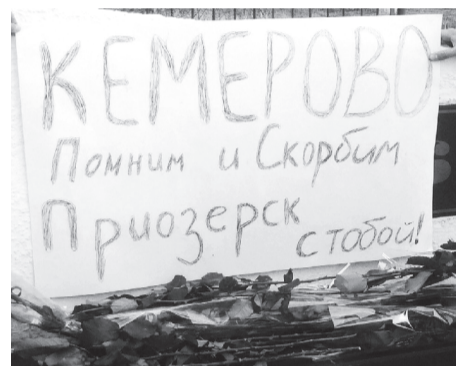 КЕМЕРОВО
Помним и Скорбим
Приозерск
с тобой!